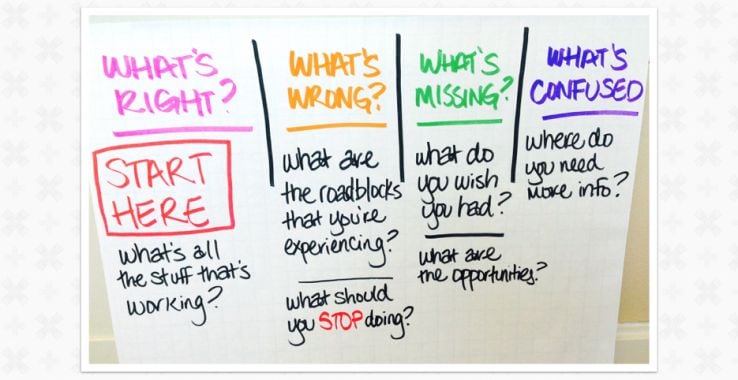 WHAT'S
RIGHT?
START
HERE
what's all
the stuff that's
working?
WHAT'S
WRONG?
what are
the roadblocks
that you're
experiencing?
what should
you STOP doing?
WHAT'S
MISSING?
what do
you wish
you had?
what are
the opportunities?
WHAT'S
CONFUSED
where do
you need
more info?